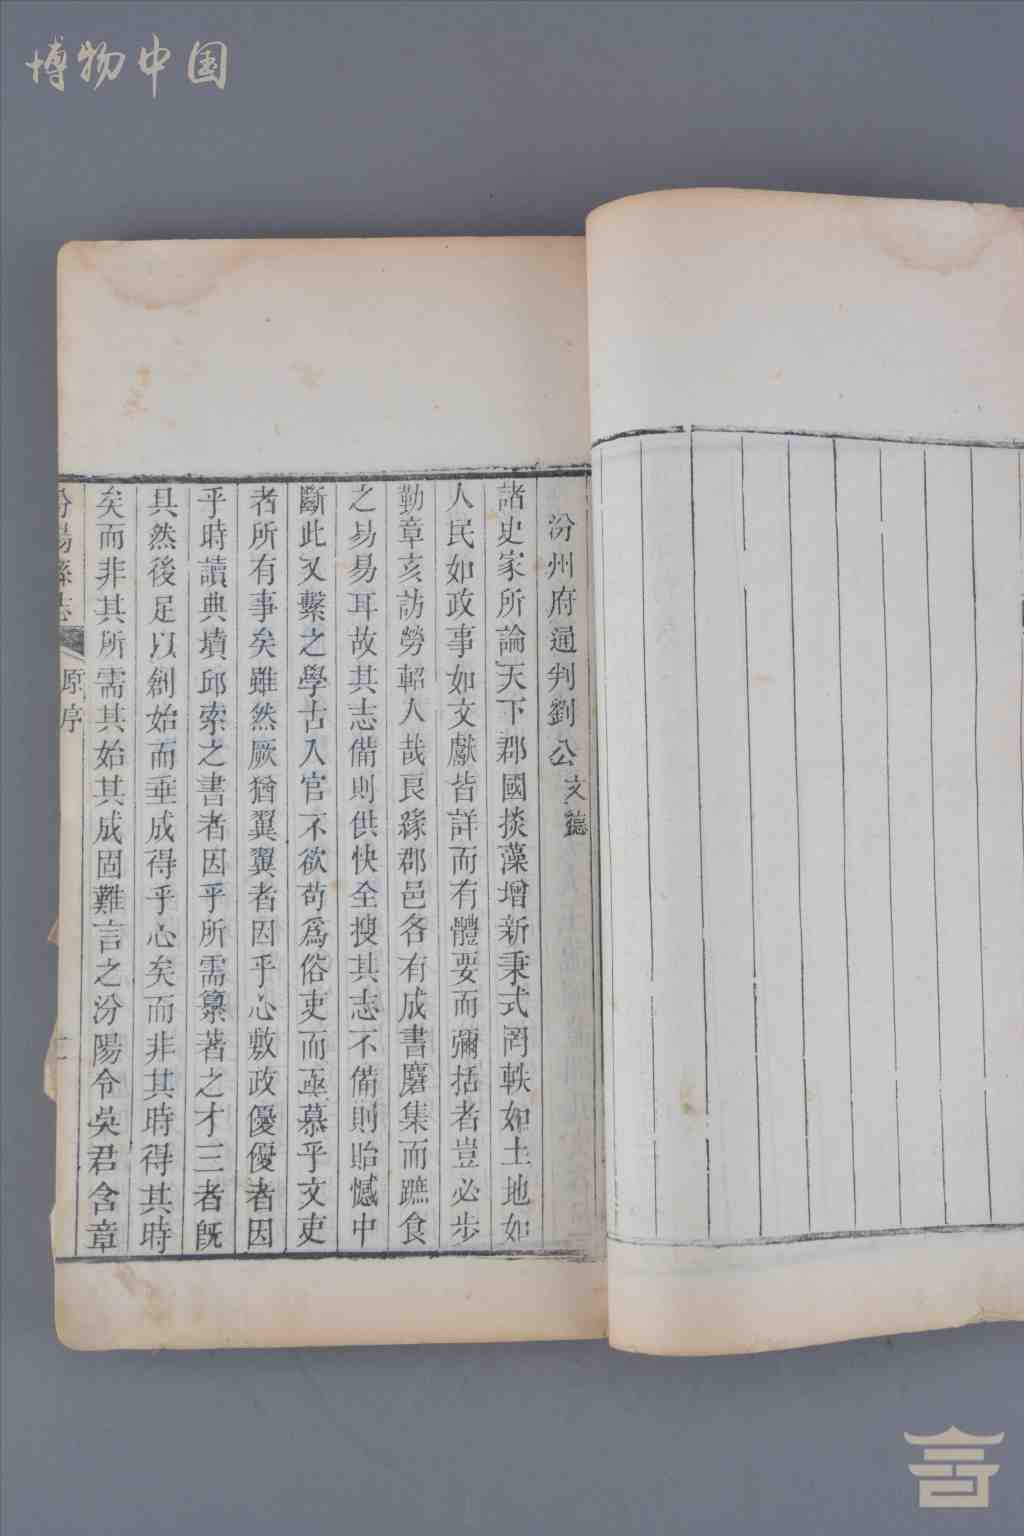 博物中国
汾州府通判劉公文德
諸史家所論天下郡國掞藻增新秉式罔軼如土地如
人民如政事如文獻皆詳而有體要而彌括者豈必步
勒章亥訪勞軺人哉良緣郡邑各有成書麕集而蹠食
之易易耳故其志備則供快全搜其志不備則貽憾中
斷此又繫之學古入官不欲苟爲俗吏而亟慕乎文吏
者所有事矣雖然厥猶翼翼者因乎心敷政優優者因
乎時讀典墳邱索之書者因乎所需纂著之才三者旣
具然後足以創始而垂成得乎心矣而非其時得其時
矣而非其所需其始其成固難言之汾陽令吳君含章
汾陽縣志 原序 二